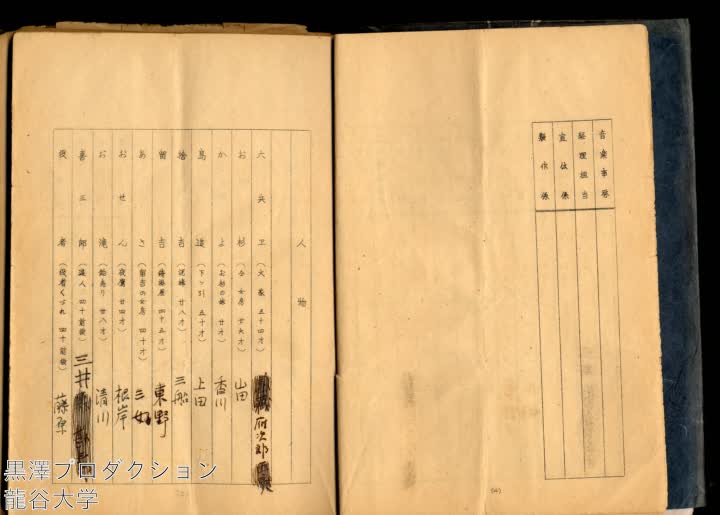 音楽事務
経理担当
宣伝係
製作係
人物
六兵ヱ(大家 五十四才) 府次郎
お杉(仝女房 廿六才) 山田
かよ(お杉の妹 廿才) 香川
島造(下ッ引 五十才) 上田
捨吉(泥棒 廿八才) 三船
留吉(鋳掛屋 四十五才) 東野
あさ(留吉の女房 四十才) 三好
おせん(夜鷹 廿四才) 根岸
お滝(飴売り 廿八才) 清川
喜三郎(遊人 四十前後) 三井
役者(役者くづれ 四十前後) 藤原
黒澤プロダクション
龍谷大学